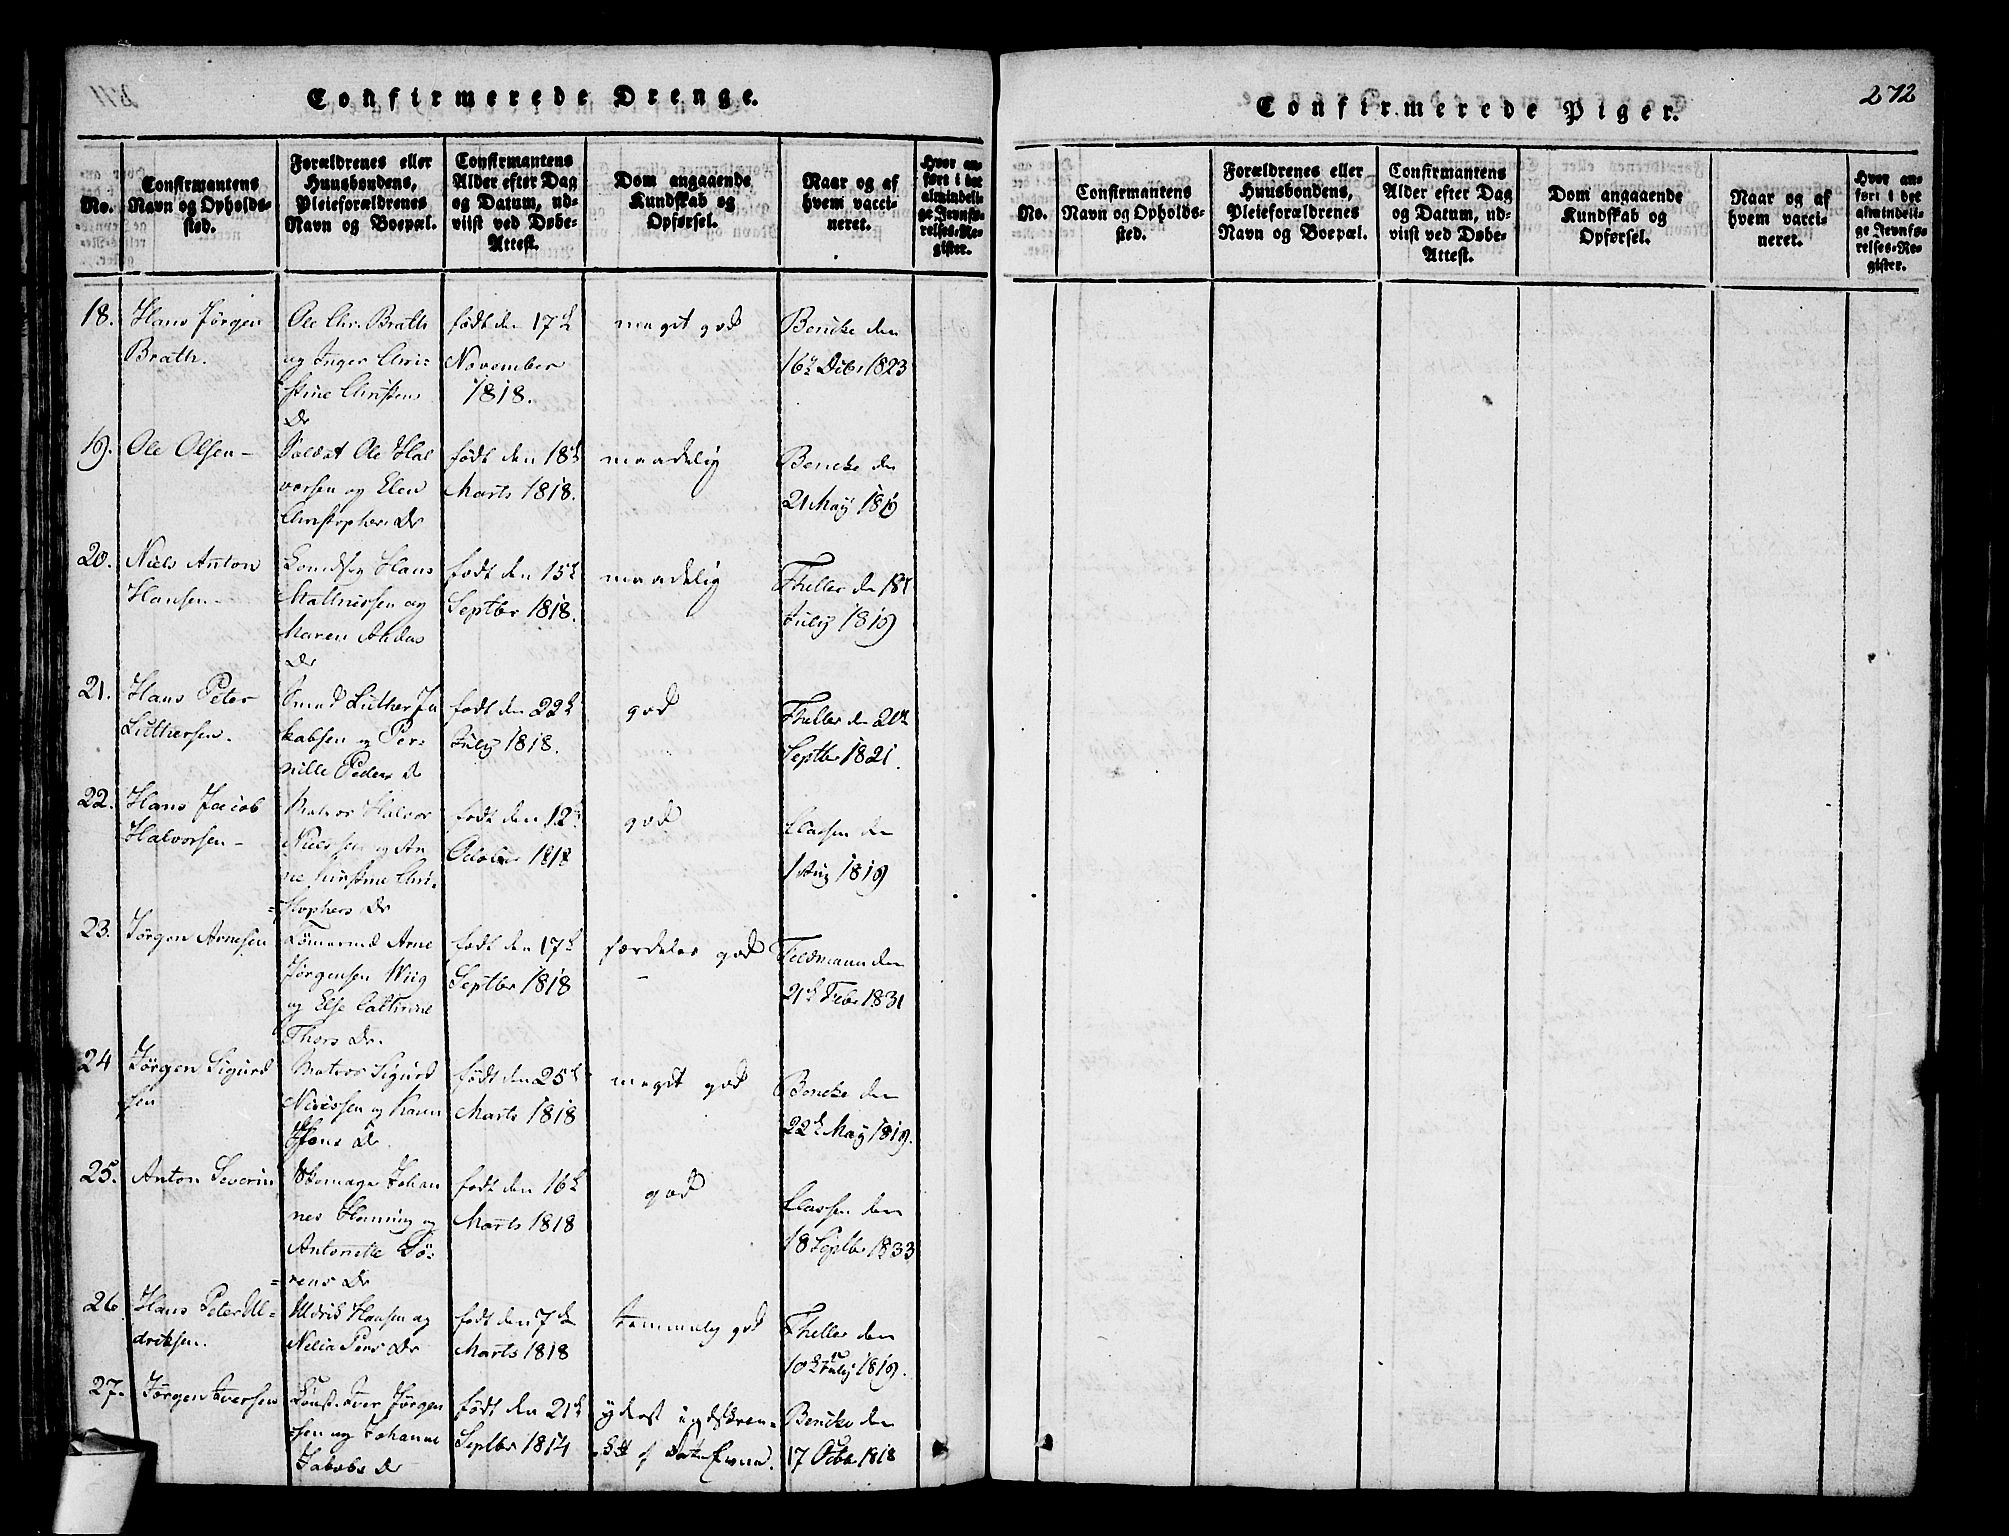 Confirmerede Drenge.
No.
Confirmantens
Navn og Opholds-
sted.
Forældrenes eller
Huusbondens,
Pleieforældrenes
Navn og Boepæl.
Confirmantens
Alder efter Dag
og Datum, ud-
viist ved Døbe-
Attest.
Dom angaaende
Kundskab og
Opførsel.
Naar og af
hvem vacci-
neret.
Hvor an-
ført i det
almindeli-
ge Jevnfø-
relses-Re-
gister.
18.
Hans Jörgen
Brath.
Ole Chr. Brath
og Inger Chri-
stine Christens
Dr
født den 17de
November
1818.
meget god
Bencke den
16de Decbr 1823
19.
Ole Olsen -
Soldat Ole Hal
vorsen og Elen
Christophers Dr
født den 18de
Marts 1818.
maadelig
Bencke den
21 May 1819
20.
Niels Anton
Hansen -
Hans
Mathiessen og
Maren
Dr
født den 15de
Septbr 1818.
maadelig
Theller den 18de
July 1819
21.
Hans Peter
Luthersen.
Smed Luther Ja
kobsen og Per-
nille Peders Dr
født den 22de
July 1818.
god
Theller den
Septbr 1821.
22.
Hans Jacob
Halvorsen -
Matros Halvor
Nielssen og An
ne Kirstine Chri-
=stophers Dr
født den 12te
October 1818
god
Classen den
1 Aug 1819
23.
Jörgen Arnesen
Tömermd Arne
Jörgensen Wiig
og Else Cathrine
Thors Dr.
født den 17de
Septbr 1818
særdeles god
Feldmann den
21de Febr 1831
24
Jörgen Sigurd
sen
Matros Sigurd
Nielssen og Karen
Dr.
født den 25de
Marts 1818
meget god
Bencke den
22de May 1819.
25.
Anton Severin
Skomager Johan
nes Henning og
Antonette Sö-
=rens Dr
født den 16de
Marts 1818
god
Classen den
18 Septbr 1833
26
Hans Peter Ul-
driksen.
Uldrik Hansen og
Nelia Pers Dr
født den 7de
Marts 1818
temmelig god
Theller den
10de July 1819.
27.
Jörgen Iversen
Iver Jörgen
=sen og Johanne
Jakobs Dr
født den 21de
Septbr 1814
yderst indskræn-
=ket af
Bencke den
17 Octbr 1818
272
Confirmerede Piger.
No.
Confirmantens
Navn og Opholds-
sted.
Forældrenes eller
Huusbondens,
Pleieforældrenes
Navn og Boepæl.
Confirmantens
Alder efter Dag
og Datum, ud-
viist ved Døbe-
Attest.
Dom angaaende
Kundskab og
Opførsel.
Naar og af
hvem vacci-
neret.
Hvor an-
ført i det
almindeli-
ge Jevnfø-
relses-Re-
gister.